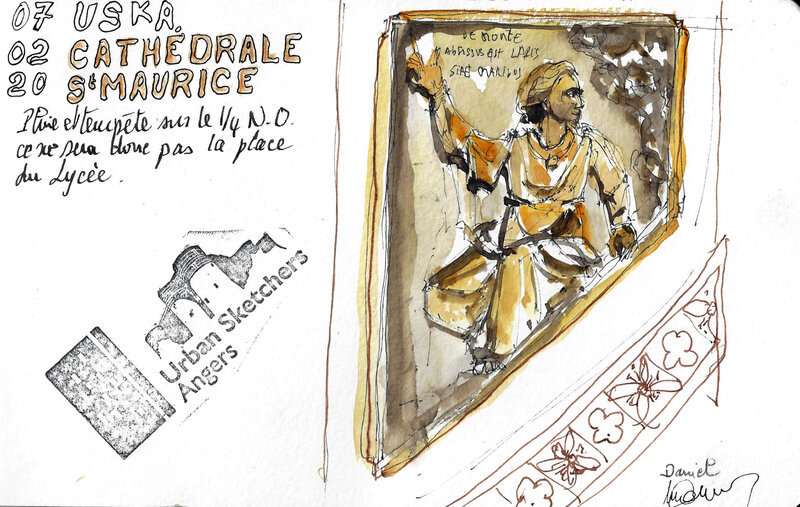 07 USKA.
02 CATHÉDRALE
20 St MAURICE
Pluie et tempête sur le 1/4 N.O.
ce ne sera donc pas la place
du Lycée.
DE MONTE
ABSCISUS EST LAPIS
SINE MANIBUS
Urban Sketchers
Angers
Daniel